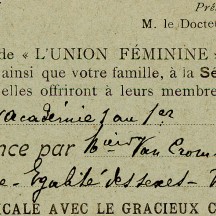 Pré
M. le Doct
de « L'UNION FÉMININE »
ainsi que votre famille, à la Sé
elles offriront à leurs membre
académie
nce par Van Crom
Egalité des sexes
ICALE AVEC LE GRACIEUX C